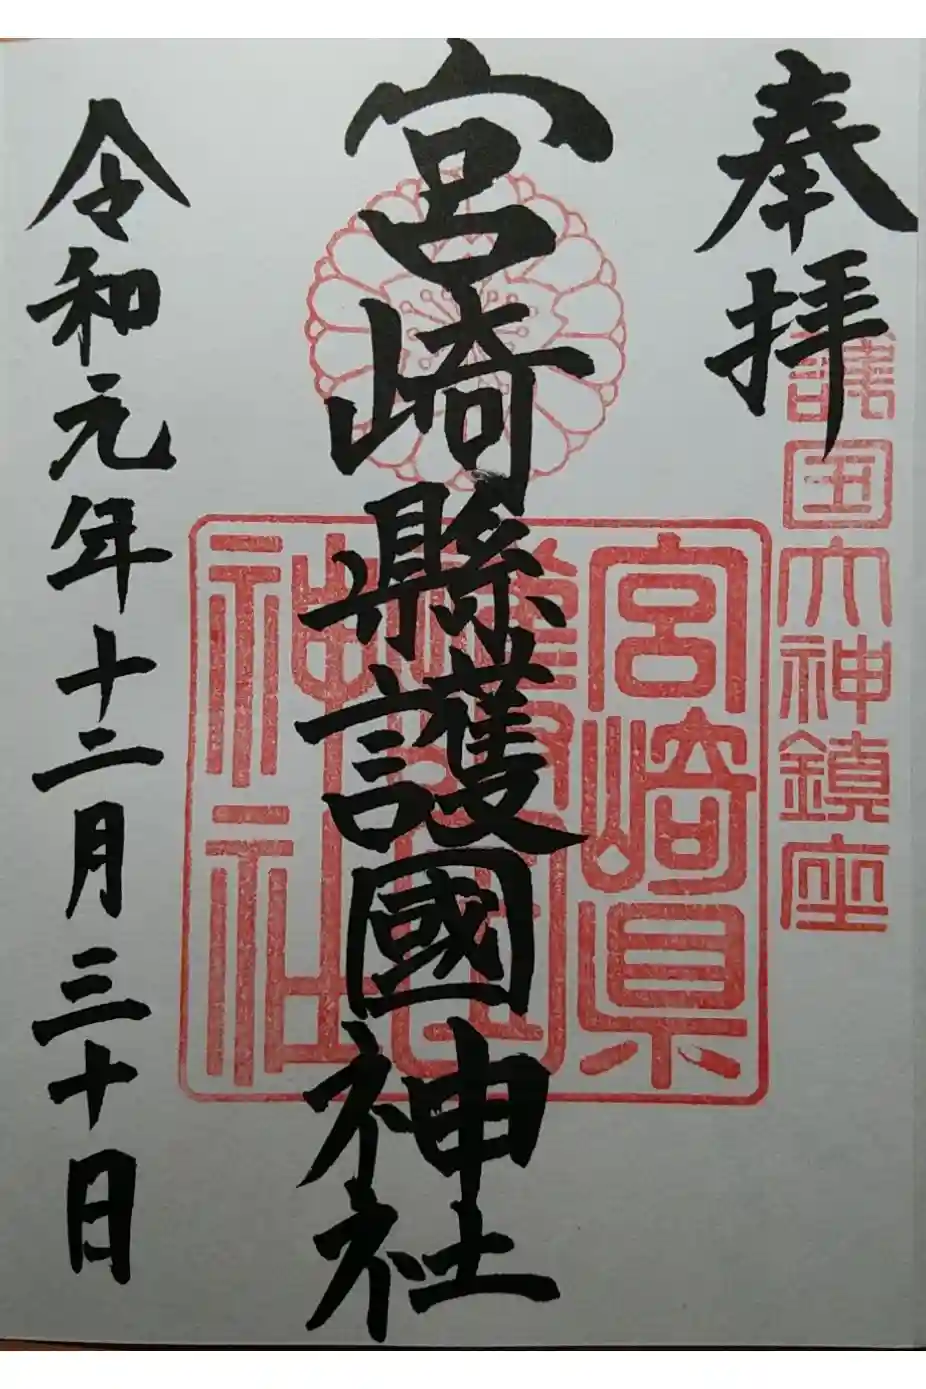 奉拝
護国大神鎮座
宮崎縣護國神社
宮崎県
護国
神社
令和元年十二月三十日